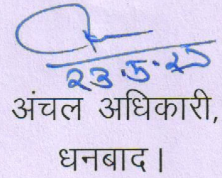 23.5.25
अंचल अधिकारी,
धनबाद।